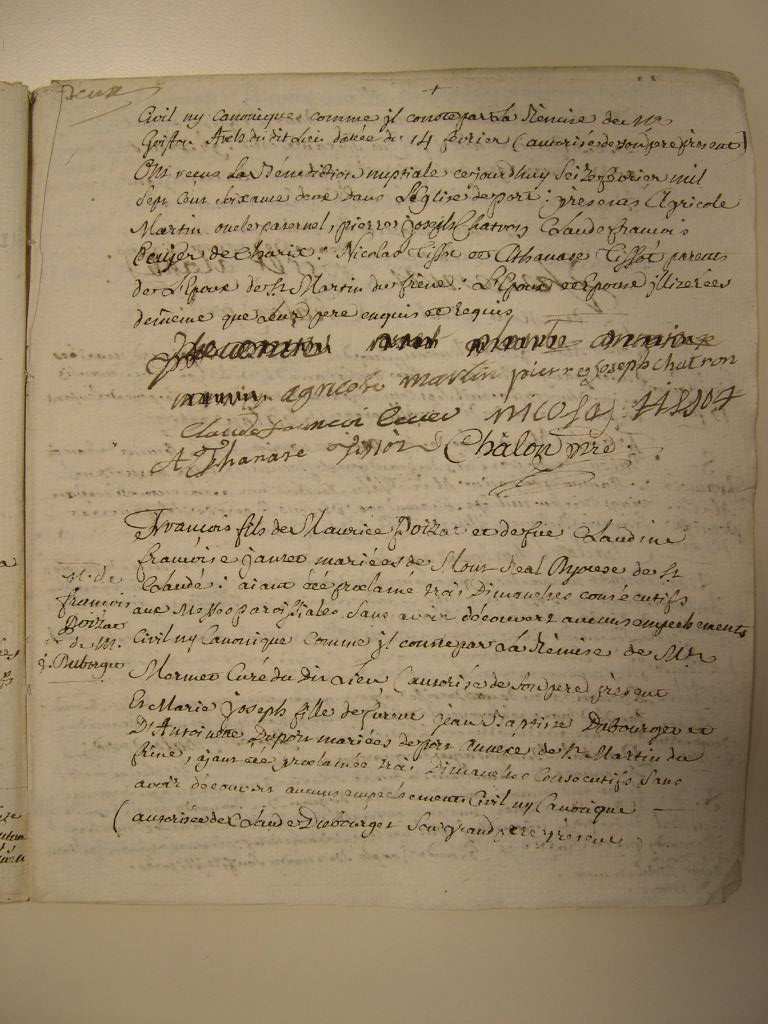 Civil ny Canonique comme jl conste par La Remise de Mr
dudit Lieu datée du 14 fevrier (autorisé de son pere present)
Ont reçus La Bénédiction nuptiale cejourdhuy Seize fevrier mil
Sept Cent soixante deux dans L'Eglise de port : presents Agricole
Martin oncle paternel, pierre joseph Chatron Claude françois
de Charix : Nicolas Tissot et Athanase Tissot parents
de L'Epoux de St Martin du frêne : L'Epoux et Epouse jllizerées
demême que Leur pere enquis et Requis
agricole martin pierre joseph chatron
claude francoi NICOLAS TISSOT
AThanase Tissot Chalon ptre
françois fils de Maurice Poizat et de füe Claudine
françoise jauret mariées de Mont real Dyocese de St
Claude : aiant été proclamé trois Dimanches consécutifs
aux Messes paroissiales Sans avoir découvert aucuns empeschements
Civil ny Canonique Comme jl conste par La Remise de Mr
Mermet Curé du dit Lieu (autorisé de Son pere present
Et Marie joseph fille de jean Baptiste Dubourget et
D'Antoinette Dupon mariées de port annexe de St Martin du
frêne, ajant été proclamée trois Dimanches Consécutifs Sans
avoir découvert aucuns empeschements Civil ny Canonique
(autorisée de Claude Dubourget Son grand pere present
M. de
françois
Poizat
& M.
j. Duborget